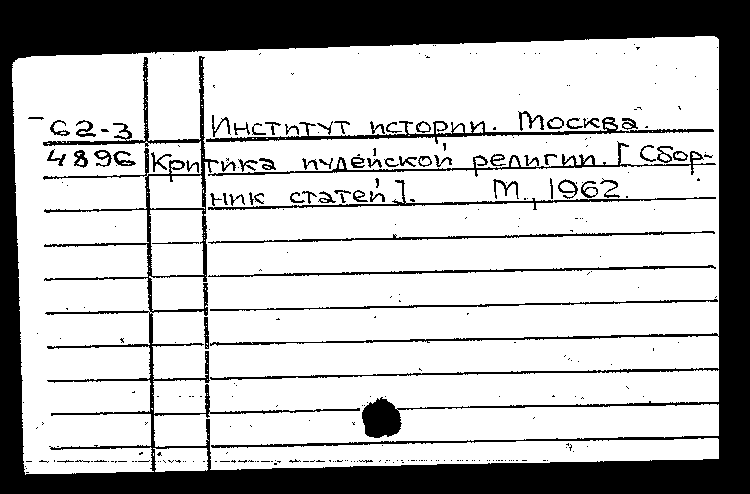 62-3 Институт истории. Москва.
4896 Критика иудейской религии. [Сбор-
ник статей]. М., 1962.